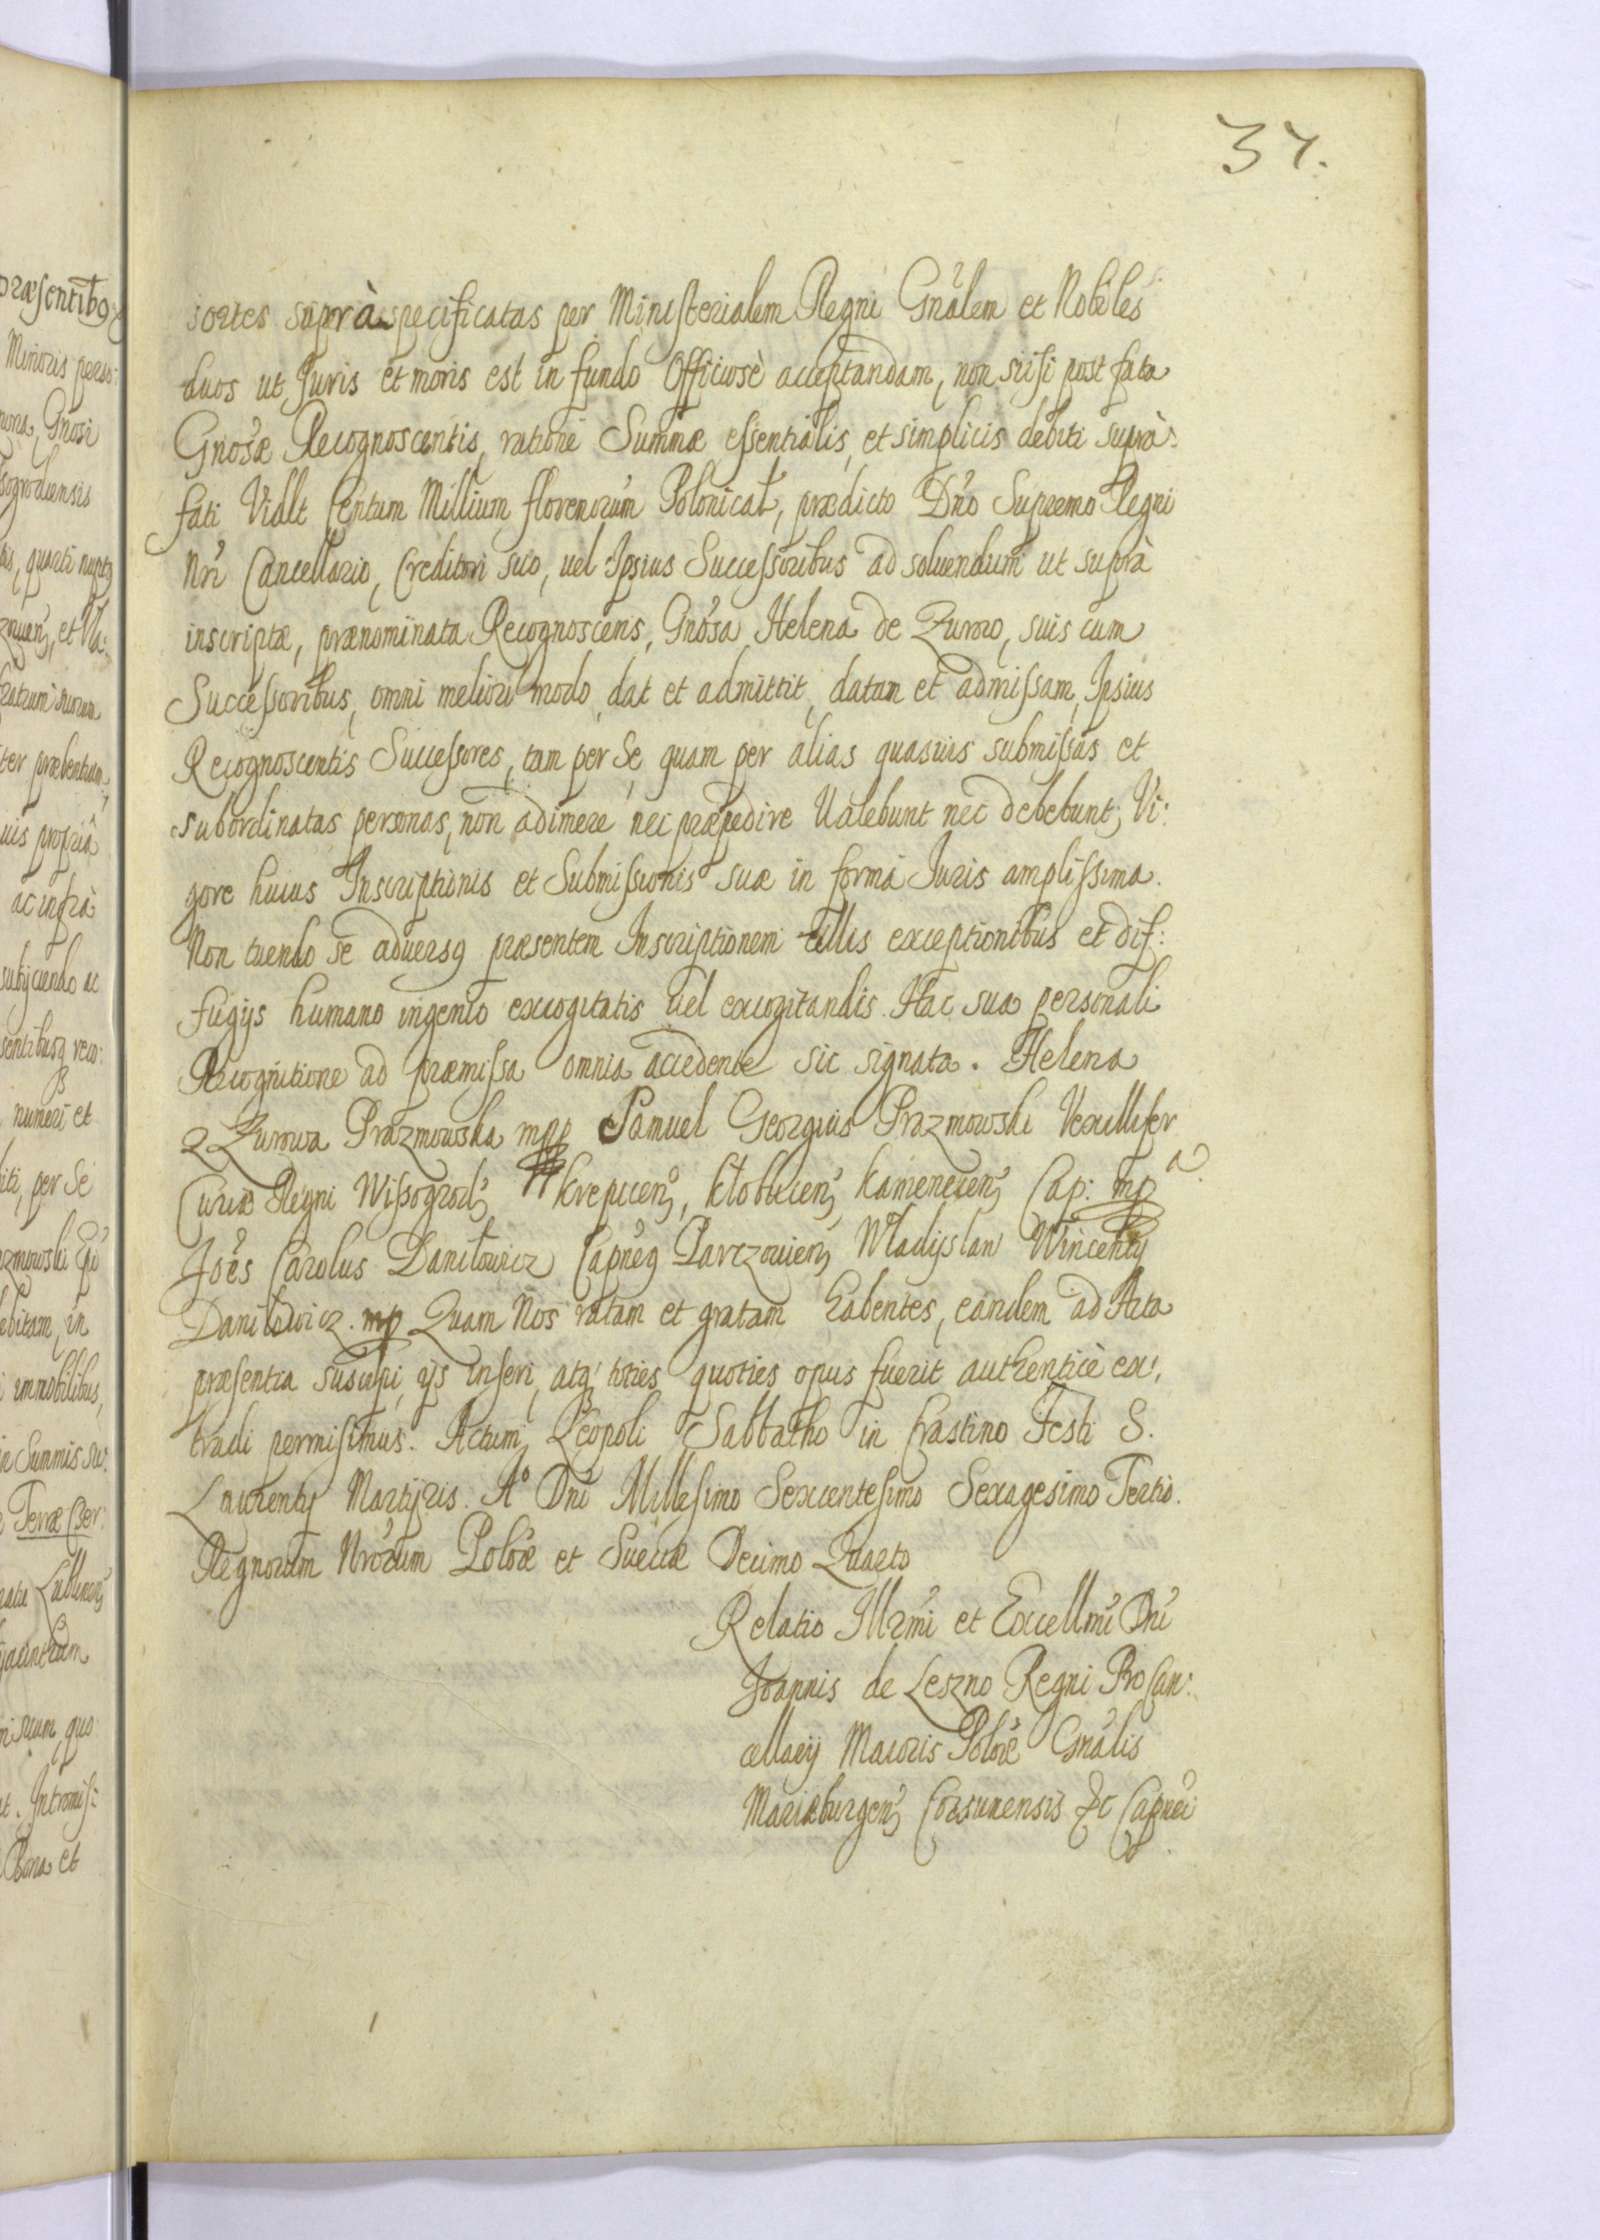 37.
sortes suprà specificatas per Ministerialem Regni Gnálem et Nobiles
duos ut Juris et moris est in fundo Officiosè acceptandam, non nisi post fata
Gnosæ Recognoscentis, ratione Summæ essentialis, et simplicis debiti suprà:
fati Vidlt Centum Millium florenorum Polonical, prædicto Dno Supremo Regni
Nri Cancellario, Creditori suo, uel Ipsius Successoribus ad soluendum ut suprà
inscriptæ, prænominata Recognoscens, Gnosa Helena de Zurow, suis cum
Successoribus, omni meliori modo, dat et admittit, datam et admissam, Ipsius
Recognoscentis Successores, tam per Se, quam per alias quasuis submissas et
subordinatas personas, non adimere nec præpedire Ualebunt nec debebunt; Vi:
gore huius Inscriptionis et Submissionis suæ in forma Juris amplissima.
Non tuendo se aduersq præsentem Inscriptionem ullis exceptionibus et dif:
fugijs humano ingenio excogitatis uel excogitandis. Hac sua personali
Recognitione ad præmissa omnia accedente sic signata. Helena
z Zurowa Prazmowska mpp Samuel Georgius Prazmowski Vexillifer
Curiæ Regni Wissogrod, Krepicen, Klobucen, Kamenecen, Cap: mp
Joes Carolus Daniłowicz Capneg Parczouien, Wladyslaw Wincenty
Daniłowicz. mp Quam Nos ratam et gratam habentes, eandem ad Acta
præsentia suscipi, ijs inseri, atq toties quoties opus fuerit authenticè ex:
tradi permisimus. Actum Leopoli Sabbatho in Crastino Festi S.
Laurentij Martyris. Ao Dni Millesimo Sexcentesimo Sexagesimo Tertio.
Regnorum Nrorum Poloæ et Sueciæ Decimo Quarto
Relatio Illrmi et Excellmi Dni
Joannis de Leszno Regni ProCan:
cellarij Maioris Poloæ Gnalis
Mariæburgen, Corsunensis &c Capnei